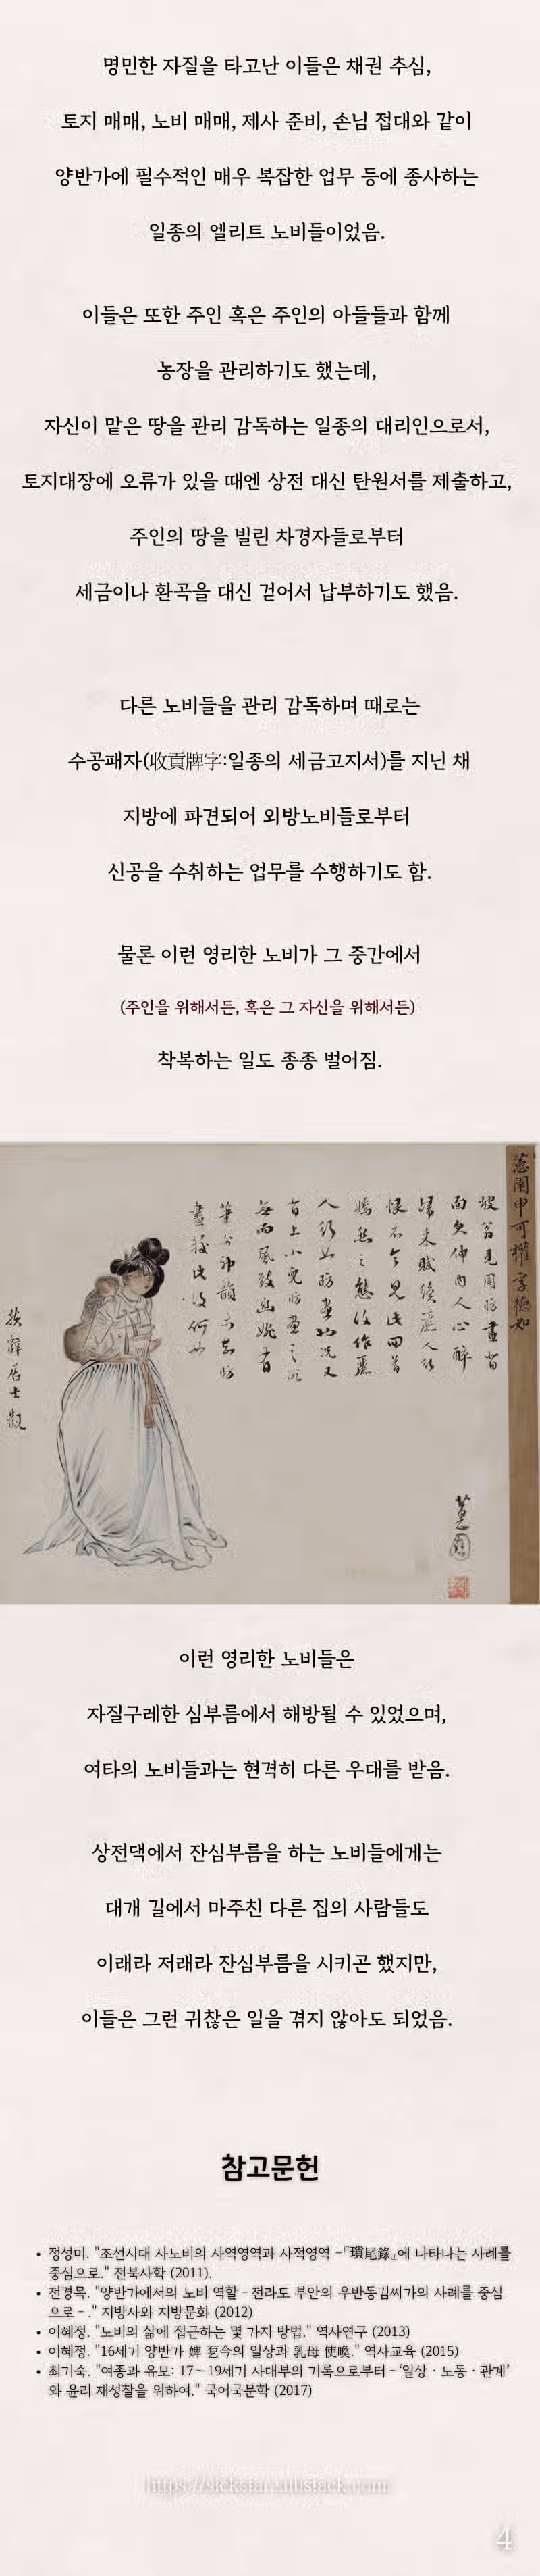 명민한 자질을 타고난 이들은 채권 추심,
토지 매매, 노비 매매, 제사 준비, 손님 접대와 같이
양반가에 필수적인 매우 복잡한 업무 등에 종사하는
일종의 엘리트 노비들이었음.
이들은 또한 주인 혹은 주인의 아들들과 함께
농장을 관리하기도 했는데,
자신이 맡은 땅을 관리 감독하는 일종의 대리인으로서,
토지대장에 오류가 있을 때엔 상전 대신 탄원서를 제출하고,
주인의 땅을 빌린 차경자들로부터
세금이나 환곡을 대신 걷어서 납부하기도 했음.
다른 노비들을 관리 감독하며 때로는
수공패자(收貢牌字:일종의 세금고지서)를 지닌 채
지방에 파견되어 외방노비들로부터
신공을 수취하는 업무를 수행하기도 함.
물론 이런 영리한 노비가 그 중간에서
(주인을 위해서든, 혹은 그 자신을 위해서든)
착복하는 일도 종종 벌어짐.
蕙園申可權字德如
坡翁見周昉畫背
面欠伸內人心醉
歸來賦續麗人行
恨不令見此回首
嫣然之態後作麗
人行
蕙園
이런 영리한 노비들은
자질구레한 심부름에서 해방될 수 있었으며,
여타의 노비들과는 현격히 다른 우대를 받음.
상전댁에서 잔심부름을 하는 노비들에게는
대개 길에서 마주친 다른 집의 사람들도
이래라 저래라 잔심부름을 시키곤 했지만,
이들은 그런 귀찮은 일을 겪지 않아도 되었음.
참고문헌
• 정성미. "조선시대 사노비의 사역영역과 사적영역 -『瑣尾錄』에 나타나는 사례를
중심으로." 전북사학 (2011).
• 전경목. "양반가에서의 노비 역할 - 전라도 부안의 우반동김씨가의 사례를 중심
으로 - ." 지방사와 지방문화 (2012)
• 이혜정. "노비의 삶에 접근하는 몇 가지 방법." 역사연구 (2013)
• 이혜정. "16세기 양반가 婢 돋今의 일상과 乳母 使喚." 역사교육 (2015)
• 최기숙. "여종과 유모: 17~19세기 사대부의 기록으로부터 - '일상·노동·관계'
와 윤리 재성찰을 위하여." 국어국문학 (2017)
https://sickstar.substack.com
4